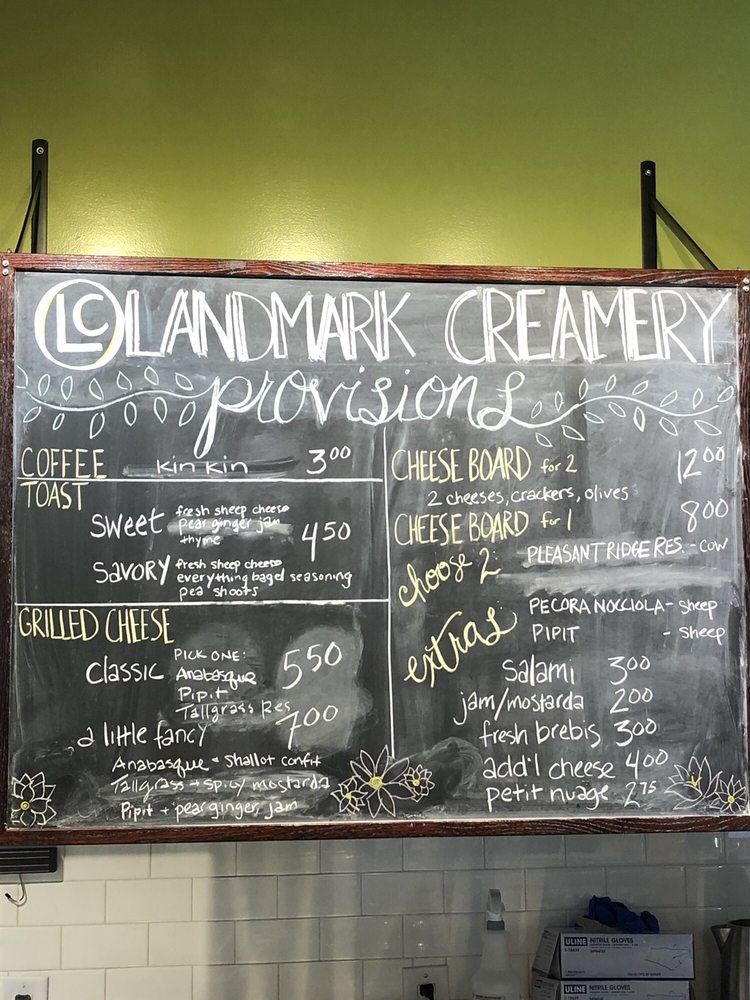 LC LANDMARK CREAMERY
provisions
COFFEE kin kin 3.00
TOAST
sweet fresh sheep cheese
pear ginger jam
thyme
4.50
SAVORY fresh sheep cheese
everything bagel seasoning
pea shoots
GRILLED CHEESE
classic PICK ONE:
Anabasque
Pipit
Tallgrass Res
5.50
a little fancy 7.00
Anabasque + shallot confit
Tallgrass + spicy mostarda
Pipit + pear ginger jam
CHEESE BOARD for 2 12.00
2 cheeses, crackers, olives
CHEESE BOARD for 1 8.00
choose 2:
PLEASANT RIDGE RES. - cow
PECORA NOCCIOLA - sheep
PIPIT - sheep
extras
salami 3.00
jam/mostarda 2.00
fresh brebis 3.00
add'l cheese 4.00
petit nuage 2.75
ULINE NITRILE GLOVES
ULINE NITRILE GLOVES